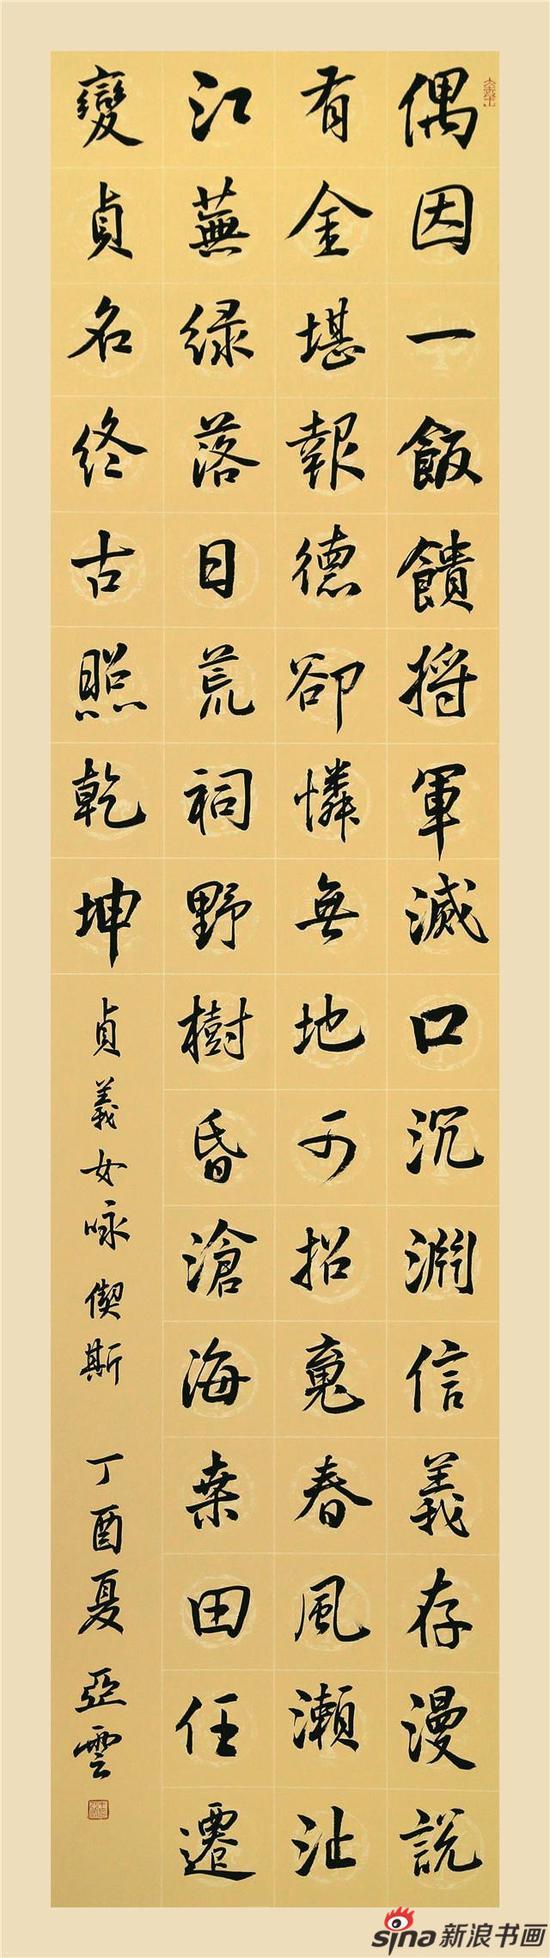 偶因一飯饋將軍滅口沉淵信義存漫說
有金堪報德卻憐無地可招魂春風瀨沚
江蕪綠落日荒祠野樹昏滄海桑田任遷
變貞名終古照乾坤
貞義女咏 偰斯 丁酉夏 亞雲
sina新浪书画